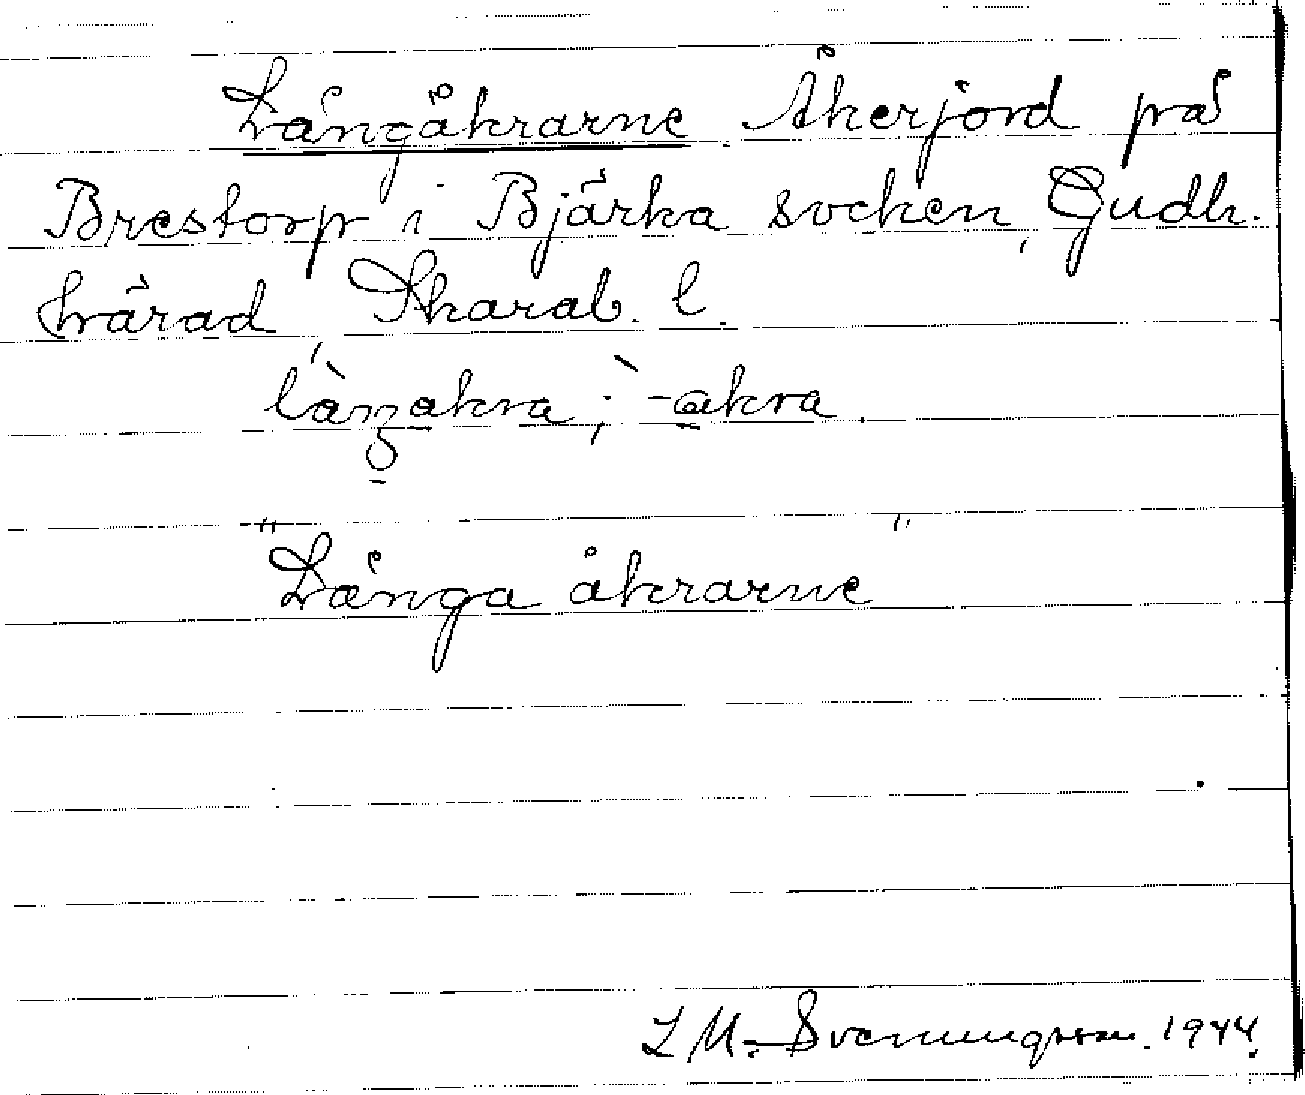 Långåkrarne Åkerjord på
Brestorp i Bjärka socken, Gudh.
härad Skarab. l.
"Långa åkrarne"
L M. Svenungsson. 1944.